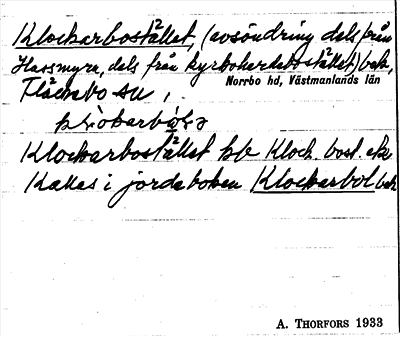 Klockarbostället, (avsöndring dels från
Hassmyra, dels från kyrboherdebostället) bek,
Norrbo hd, Västmanlands län
Fläckebo sn,
Klockarbostället bb Klock. bost. ek
Kallas i jordeboken Klockarbol bek
A. THORFORS 1933